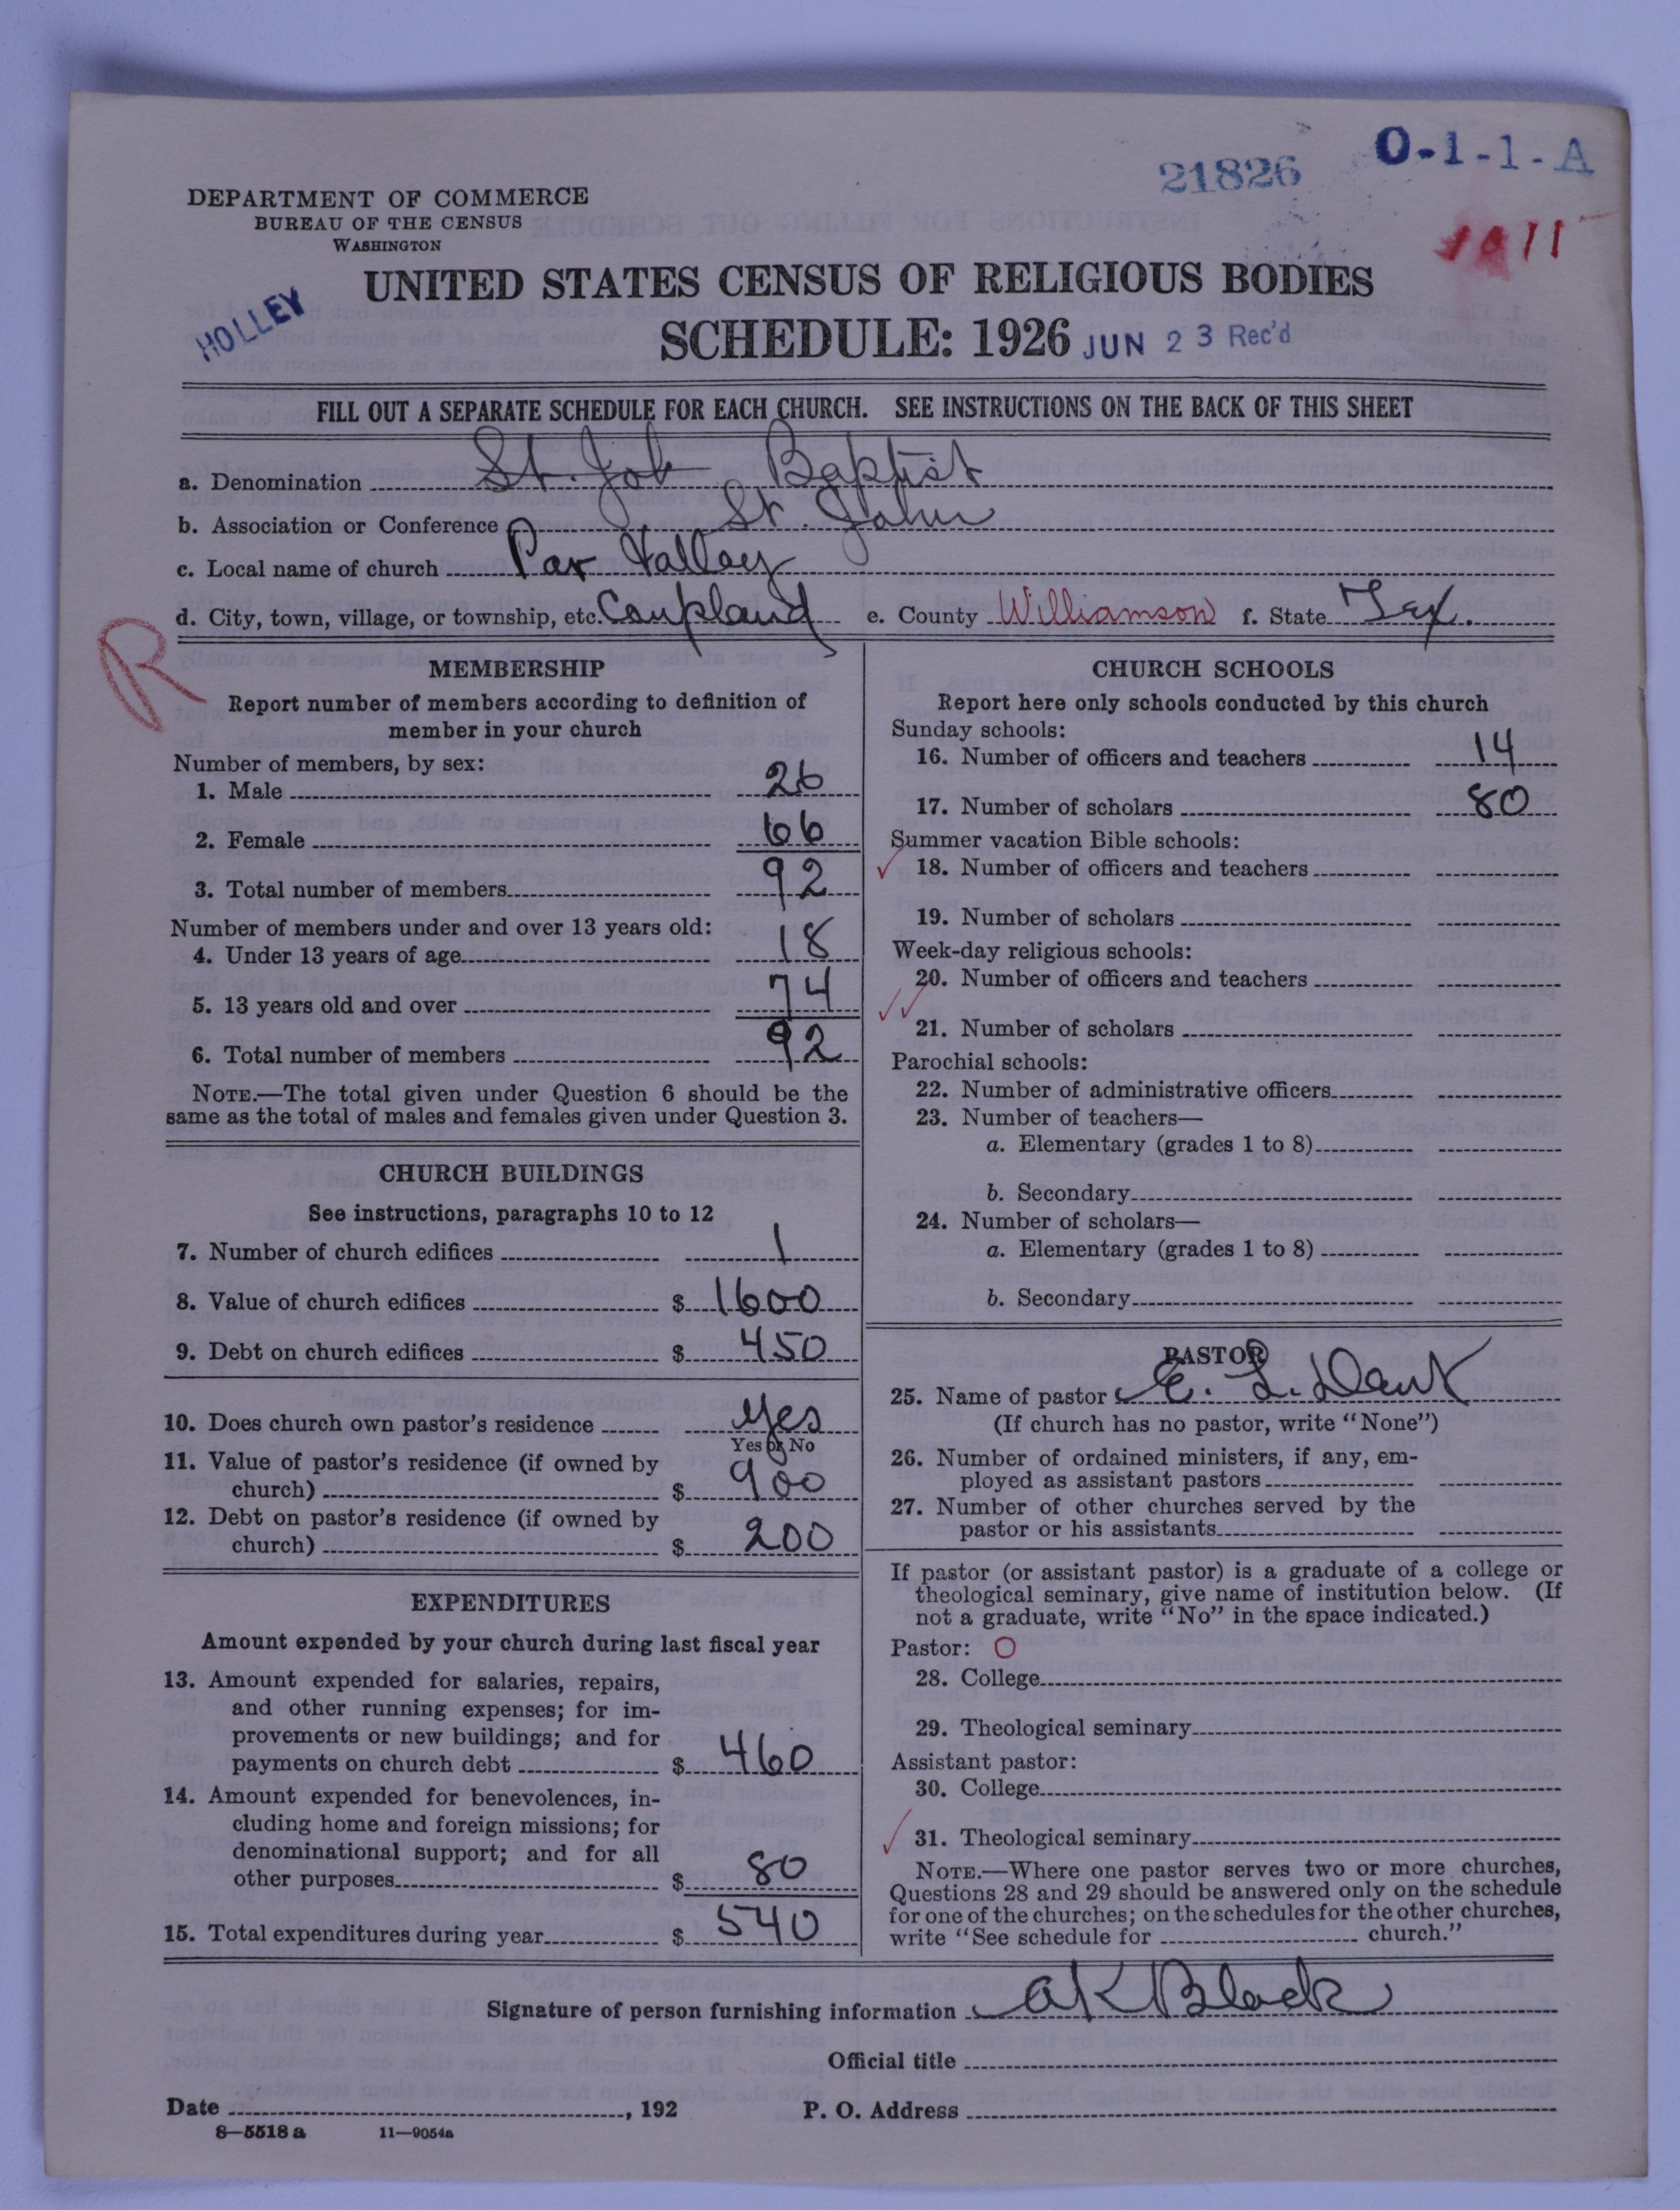 21826
O-1-1-A
DEPARTMENT OF COMMERCE
BUREAU OF THE CENSUS
WASHINGTON
1911
UNITED STATES CENSUS OF RELIGIOUS BODIES
HOLLEY
SCHEDULE: 1926 JUN 23 Rec'd
FILL OUT A SEPARATE SCHEDULE FOR EACH CHURCH. SEE INSTRUCTIONS ON THE BACK OF THIS SHEET
a. Denomination St. Job Baptist
b. Association or Conference St. John
c. Local name of church Par Valley
d. City, town, village, or township, etc. Coupland e. County Williamson f. State Tex.
R
MEMBERSHIP
Report number of members according to definition of
member in your church
Number of members, by sex:
1. Male 26
2. Female 66
3. Total number of members 92
Number of members under and over 13 years old:
4. Under 13 years of age 18
5. 13 years old and over 74
6. Total number of members 92
NOTE.—The total given under Question 6 should be the
same as the total of males and females given under Question 3.
CHURCH BUILDINGS
See instructions, paragraphs 10 to 12
7. Number of church edifices 1
8. Value of church edifices $ 1600
9. Debt on church edifices $ 450
10. Does church own pastor's residence yes
Yes or No
11. Value of pastor's residence (if owned by
church) $ 900
12. Debt on pastor's residence (if owned by
church) $ 200
EXPENDITURES
Amount expended by your church during last fiscal year
13. Amount expended for salaries, repairs,
and other running expenses; for im-
provements or new buildings; and for
payments on church debt $ 460
14. Amount expended for benevolences, in-
cluding home and foreign missions; for
denominational support; and for all
other purposes $ 80
15. Total expenditures during year $ 540
CHURCH SCHOOLS
Report here only schools conducted by this church
Sunday schools:
16. Number of officers and teachers 14
17. Number of scholars 80
Summer vacation Bible schools:
18. Number of officers and teachers
19. Number of scholars
Week-day religious schools:
20. Number of officers and teachers
21. Number of scholars
Parochial schools:
22. Number of administrative officers
23. Number of teachers—
a. Elementary (grades 1 to 8)
b. Secondary
24. Number of scholars—
a. Elementary (grades 1 to 8)
b. Secondary
PASTOR
25. Name of pastor E. L.
(If church has no pastor, write "None")
26. Number of ordained ministers, if any, em-
ployed as assistant pastors
27. Number of other churches served by the
pastor or his assistants
If pastor (or assistant pastor) is a graduate of a college or
theological seminary, give name of institution below. (If
not a graduate, write "No" in the space indicated.)
Pastor: O
28. College
29. Theological seminary
Assistant pastor:
30. College
31. Theological seminary
NOTE.—Where one pastor serves two or more churches,
Questions 28 and 29 should be answered only on the schedule
for one of the churches; on the schedules for the other churches,
write "See schedule for church."
Signature of person furnishing information A K Black
Official title
Date , 192
P. O. Address
8—5518 a 11—9054a